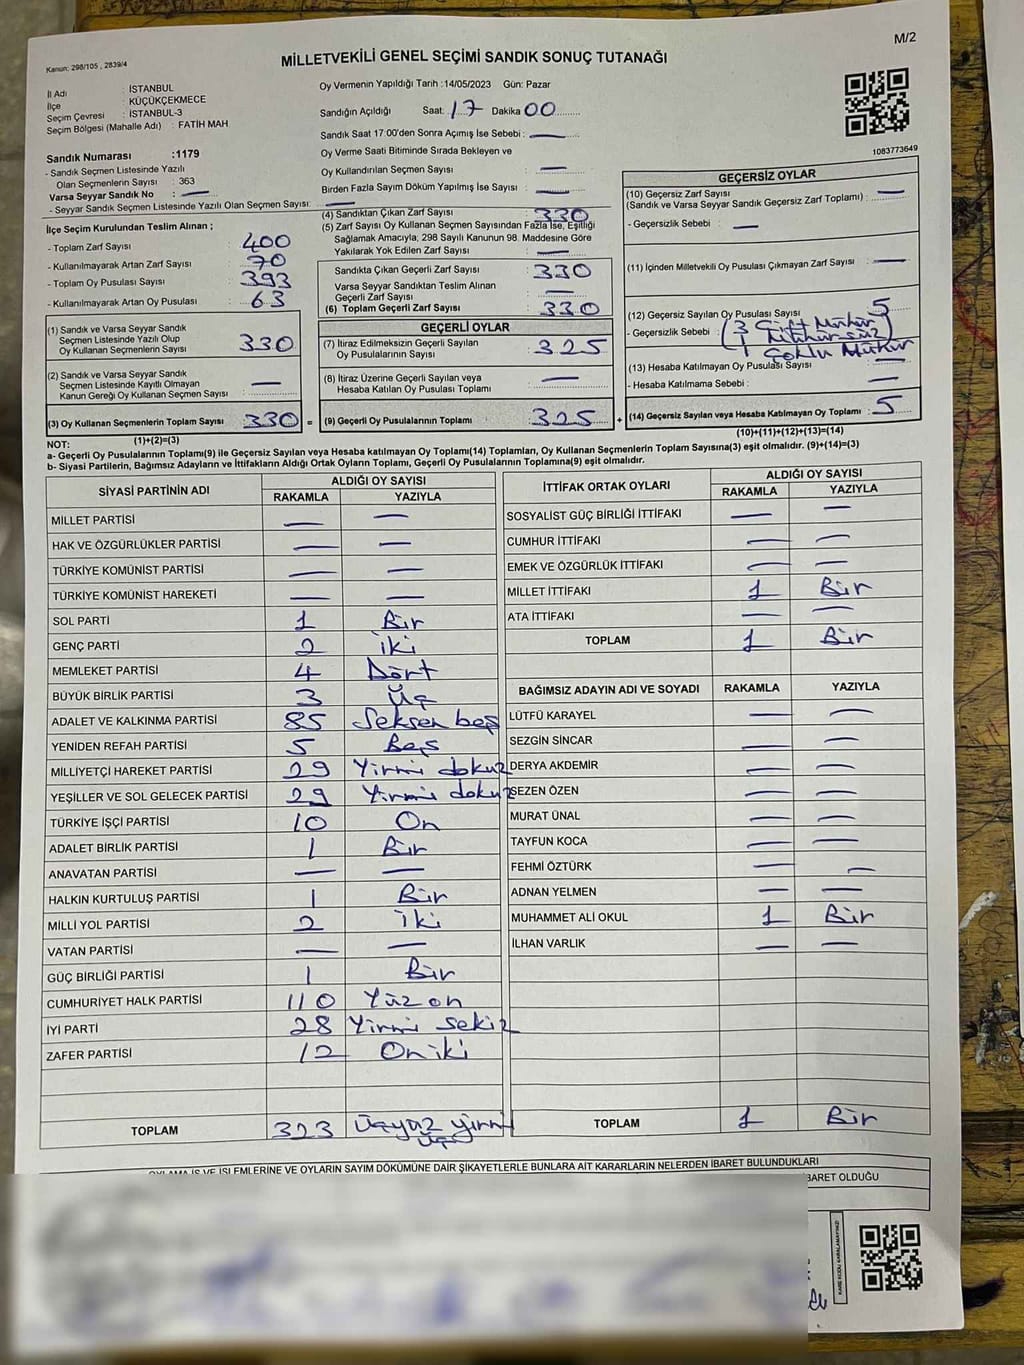 M/2
Kanun: 298/105 , 2839/4
MİLLETVEKİLİ GENEL SEÇİMİ SANDIK SONUÇ TUTANAĞI
İl Adı : İSTANBUL
İlçe : KÜÇÜKÇEKMECE
Seçim Çevresi : İSTANBUL-3
Seçim Bölgesi (Mahalle Adı) : FATİH MAH
Sandık Numarası :1179
- Sandık Seçmen Listesinde Yazılı
Olan Seçmenlerin Sayısı : 363
Varsa Seyyar Sandık No : —
- Seyyar Sandık Seçmen Listesinde Yazılı Olan Seçmen Sayısı: —
İlçe Seçim Kurulundan Teslim Alınan ;
- Toplam Zarf Sayısı : 400
- Kullanılmayarak Artan Zarf Sayısı : 70
- Toplam Oy Pusulası Sayısı : 393
- Kullanılmayarak Artan Oy Pusulası : 63
(1) Sandık ve Varsa Seyyar Sandık
Seçmen Listesinde Yazılı Olup
Oy Kullanan Seçmenlerin Sayısı : 330
(2) Sandık ve Varsa Seyyar Sandık
Seçmen Listesinde Kayıtlı Olmayan
Kanun Gereği Oy Kullanan Seçmen Sayısı : —
(3) Oy Kullanan Seçmenlerin Toplam Sayısı : 330 =
(1)+(2)=(3)
Oy Vermenin Yapıldığı Tarih :14/05/2023 Gün: Pazar
Sandığın Açıldığı Saat: 17 Dakika 00
Sandık Saat 17:00'den Sonra Açımış İse Sebebi : —
Oy Verme Saati Bitiminde Sırada Bekleyen ve
Oy Kullandırılan Seçmen Sayısı : —
Birden Fazla Sayım Döküm Yapılmış İse Sayısı : —
(4) Sandıktan Çıkan Zarf Sayısı : 330
(5) Zarf Sayısı Oy Kullanan Seçmen Sayısından Fazla İse, Eşitliği
Sağlamak Amacıyla; 298 Sayılı Kanunun 98. Maddesine Göre
Yakılarak Yok Edilen Zarf Sayısı : —
Sandıkta Çıkan Geçerli Zarf Sayısı : 330
Varsa Seyyar Sandıktan Teslim Alınan
Geçerli Zarf Sayısı : —
(6) Toplam Geçerli Zarf Sayısı : 330
GEÇERLİ OYLAR
(7) İtiraz Edilmeksizin Geçerli Sayılan
Oy Pusulalarının Sayısı : 325
(8) İtiraz Üzerine Geçerli Sayılan veya
Hesaba Katılan Oy Pusulası Toplamı : —
(9) Geçerli Oy Pusulalarının Toplamı : 325 +
1083773649
GEÇERSİZ OYLAR
(10) Geçersiz Zarf Sayısı : —
(Sandık ve Varsa Seyyar Sandık Geçersiz Zarf Toplamı)
- Geçersizlik Sebebi : —
(11) İçinden Milletvekili Oy Pusulası Çıkmayan Zarf Sayısı : —
(12) Geçersiz Sayılan Oy Pusulası Sayısı : 5
- Geçersizlik Sebebi : 3 Çift Mühür
1 Mühürsüz
1 Çoklu Mühür
(13) Hesaba Katılmayan Oy Pusulası Sayısı : —
- Hesaba Katılmama Sebebi : —
(14) Geçersiz Sayılan veya Hesaba Katılmayan Oy Toplamı : 5
(10)+(11)+(12)+(13)=(14)
NOT:
a- Geçerli Oy Pusulalarının Toplamı(9) ile Geçersiz Sayılan veya Hesaba katılmayan Oy Toplamı(14) Toplamları, Oy Kullanan Seçmenlerin Toplam Sayısına(3) eşit olmalıdır. (9)+(14)=(3)
b- Siyasi Partilerin, Bağımsız Adayların ve İttifakların Aldığı Ortak Oyların Toplamı, Geçerli Oy Pusulalarının Toplamına(9) eşit olmalıdır.
SİYASİ PARTİNİN ADI ALDIĞI OY SAYISI
RAKAMLA YAZIYLA
MİLLET PARTİSİ — —
HAK VE ÖZGÜRLÜKLER PARTİSİ — —
TÜRKİYE KOMÜNİST PARTİSİ — —
TÜRKİYE KOMÜNİST HAREKETİ — —
SOL PARTİ 1 Bir
GENÇ PARTİ 2 iki
MEMLEKET PARTİSİ 4 Dört
BÜYÜK BİRLİK PARTİSİ 3 Üç
ADALET VE KALKINMA PARTİSİ 85 Seksen beş
YENİDEN REFAH PARTİSİ 5 Beş
MİLLİYETÇİ HAREKET PARTİSİ 29 Yirmi dokuz
YEŞİLLER VE SOL GELECEK PARTİSİ 29 Yirmi dokuz
TÜRKİYE İŞÇİ PARTİSİ 10 On
ADALET BİRLİK PARTİSİ 1 Bir
ANAVATAN PARTİSİ — —
HALKIN KURTULUŞ PARTİSİ 1 Bir
MİLLİ YOL PARTİSİ 2 İki
VATAN PARTİSİ — —
GÜÇ BİRLİĞİ PARTİSİ 1 Bir
CUMHURİYET HALK PARTİSİ 110 Yüz on
İYİ PARTİ 28 Yirmi sekiz
ZAFER PARTİSİ 12 On iki
TOPLAM 323 Üçyüz yirmi
üç
İTTİFAK ORTAK OYLARI ALDIĞI OY SAYISI
RAKAMLA YAZIYLA
SOSYALİST GÜÇ BİRLİĞİ İTTİFAKI — —
CUMHUR İTTİFAKI — —
EMEK VE ÖZGÜRLÜK İTTİFAKI — —
MİLLET İTTİFAKI 1 Bir
ATA İTTİFAKI — —
TOPLAM 1 Bir
BAĞIMSIZ ADAYIN ADI VE SOYADI RAKAMLA YAZIYLA
LÜTFÜ KARAYEL — —
SEZGİN SİNCAR — —
DERYA AKDEMİR — —
SEZEN ÖZEN — —
MURAT ÜNAL — —
TAYFUN KOCA — —
FEHMİ ÖZTÜRK — —
ADNAN YELMEN — —
MUHAMMET ALİ OKUL 1 Bir
İLHAN VARLIK — —
TOPLAM 1 Bir
OYLAMA İŞ VE İŞLEMLERİNE VE OYLARIN SAYIM DÖKÜMÜNE DAİR ŞİKAYETLERLE BUNLARA AİT KARARLARIN NELERDEN İBARET BULUNDUKLARI
BARET OLDUĞU
KARE KODU KARALAMAYINIZ!